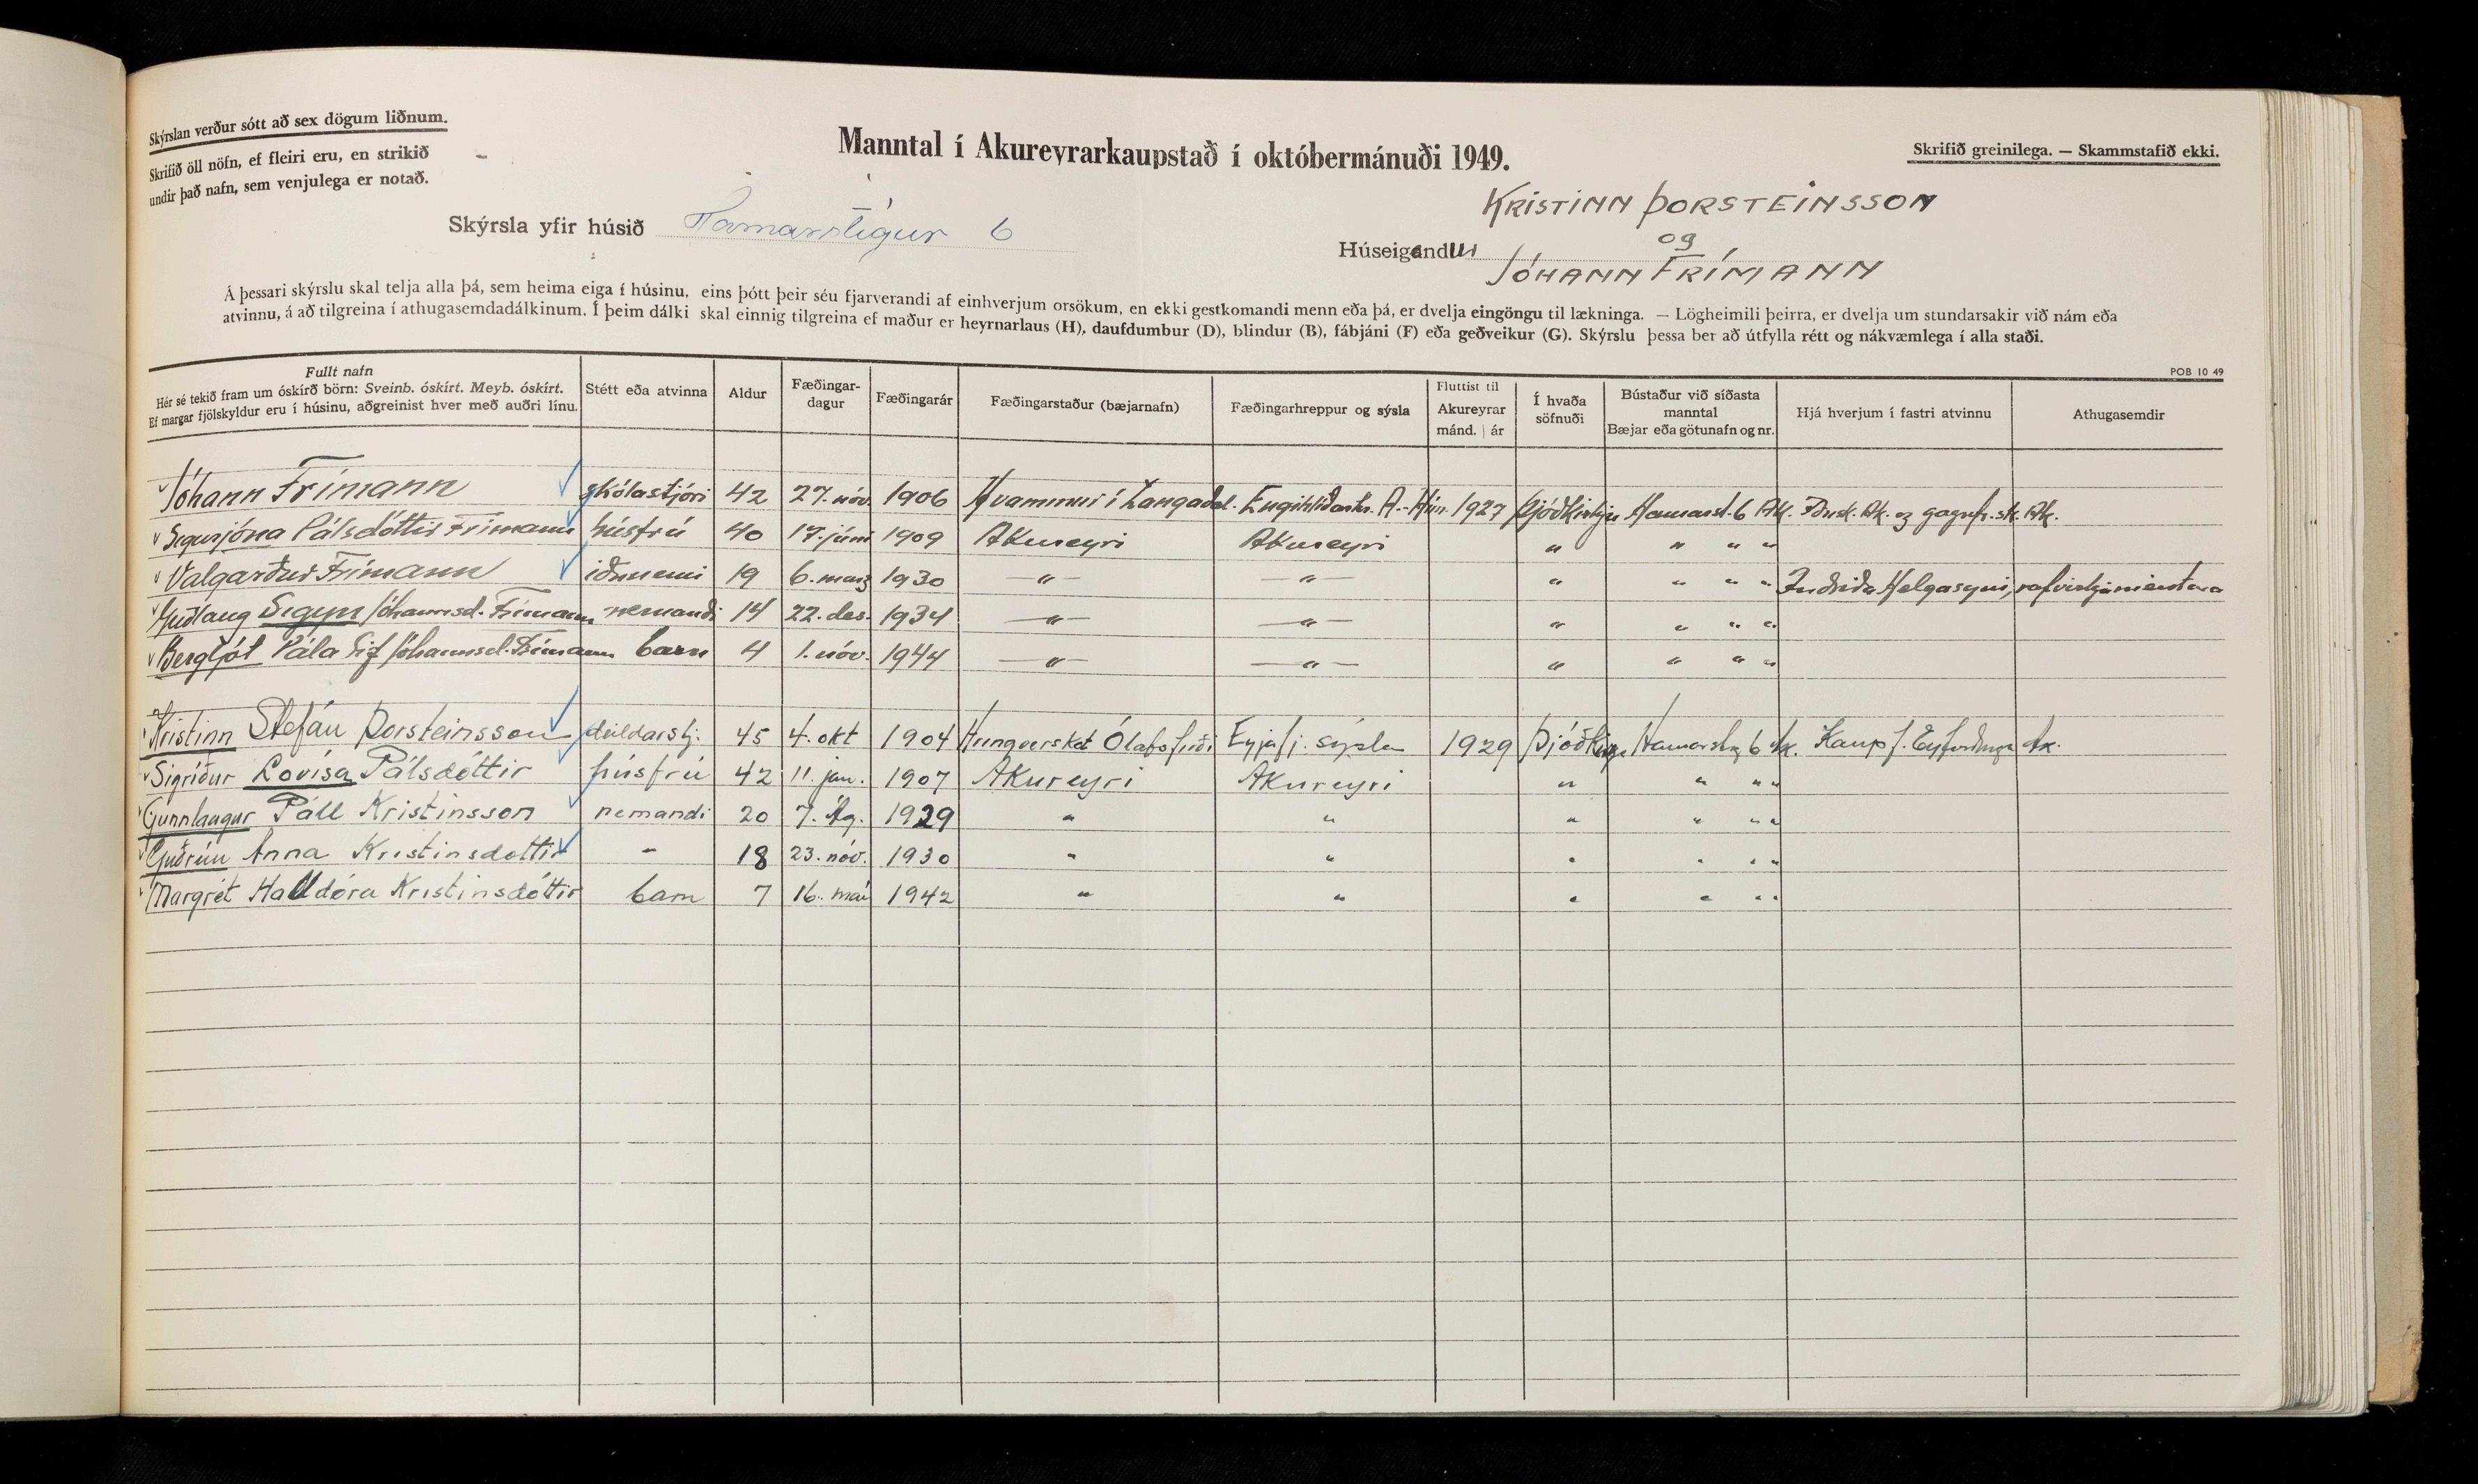 Skýrslan verður sótt að sex dögum liðnum.
Skrifið öll nöfn, ef fleiri eru, en strikið
undir það nafn, sem venjulega er notað.
Manntal í Akureyrarkaupstað í októbermánuði 1949.
Skrifið greinilega. — Skammstafið ekki.
Skýrsla yfir húsið Hamarstígur 6
Húseigendur Kristinn Þorsteinsson
og
Jóhann Frímann
Á þessari skýrslu skal telja alla þá, sem heima eiga í húsinu, eins þótt þeir séu fjarverandi af einhverjum orsökum, en ekki gestkomandi menn eða þá, er dvelja eingöngu til lækninga. — Lögheimili þeirra, er dvelja um stundarsakir við nám eða
atvinnu, á að tilgreina í athugasemdadálkinum. Í þeim dálki skal einnig tilgreina ef maður er heyrnarlaus (H), daufdumbur (D), blindur (B), fábjáni (F) eða geðveikur (G). Skýrslu þessa ber að útfylla rétt og nákvæmlega í alla staði.
POB 10 49
Fullt nafn
Hér sé tekið fram um óskírð börn: Sveinb. óskírt. Meyb. óskírt.
Ef margar fjölskyldur eru í húsinu, aðgreinist hver með auðri línu.
Stétt eða atvinna
Aldur
Fæðingar-
dagur
Fæðingarár
Fæðingarstaður (bæjarnafn)
Fæðingarhreppur og sýsla
Fluttist til
Akureyrar
mánd. | ár
Í hvaða
söfnuði
Bústaður við síðasta
manntal
Bæjar eða götunafn og nr.
Hjá hverjum í fastri atvinnu
Athugasemdir
Jóhann Frímann skólastjóri 42 27. nóv. 1906 Hvammur í Langadal. Engihlíðarhr. A.-Hún. 1927 Þjóðkirkju Hamarst. 6 Ak. Iðnsk. Ak. og gagnfr.sk. Ak.
Sigurjóna Pálsdóttir Frímann húsfrú 40 17. júní 1909 Akureyri Akureyri " " " "
Valgarður Frímann iðnnemi 19 6. marz 1930 —"— —"— " " " " Indriða Helgasyni, rafvirkjameistara
Guðlaug Sigyn Jóhannsd. Frímann nemandi 14 22. des. 1934 —"— —"— " " " "
Bergljót Pála Sif Jóhannsd. Frímann barn 4 1. nóv. 1944 —"— —"— " " " "
Kristinn Stefán Þorsteinsson deildarstj. 45 4. okt 1904 Ólafsfirði Eyjafj. sýsla 1929 Þjóðkirkju Hamarstíg 6 Ak. Kaupf. Eyfirðinga Ak.
Sigríður Lovísa Pálsdóttir húsfrú 42 11. jan. 1907 Akureyri Akureyri " " " "
Gunnlaugur Páll Kristinsson nemandi 20 7. Ág. 1929 " " " " " "
Guðrún Anna Kristinsdóttir " 18 23. nóv. 1930 " " " " " "
Margrét Halldóra Kristinsdóttir barn 7 16. maí 1942 " " " " " "